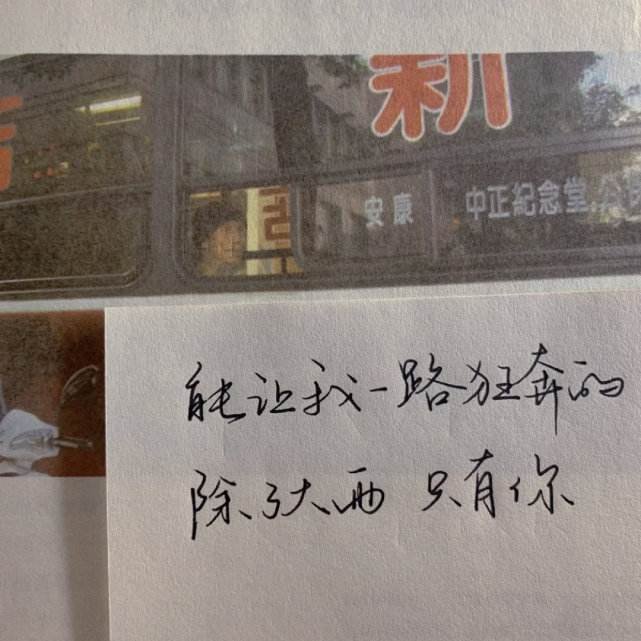 新
安康
中正紀念堂
能让我一路狂奔的
除了大西 只有你